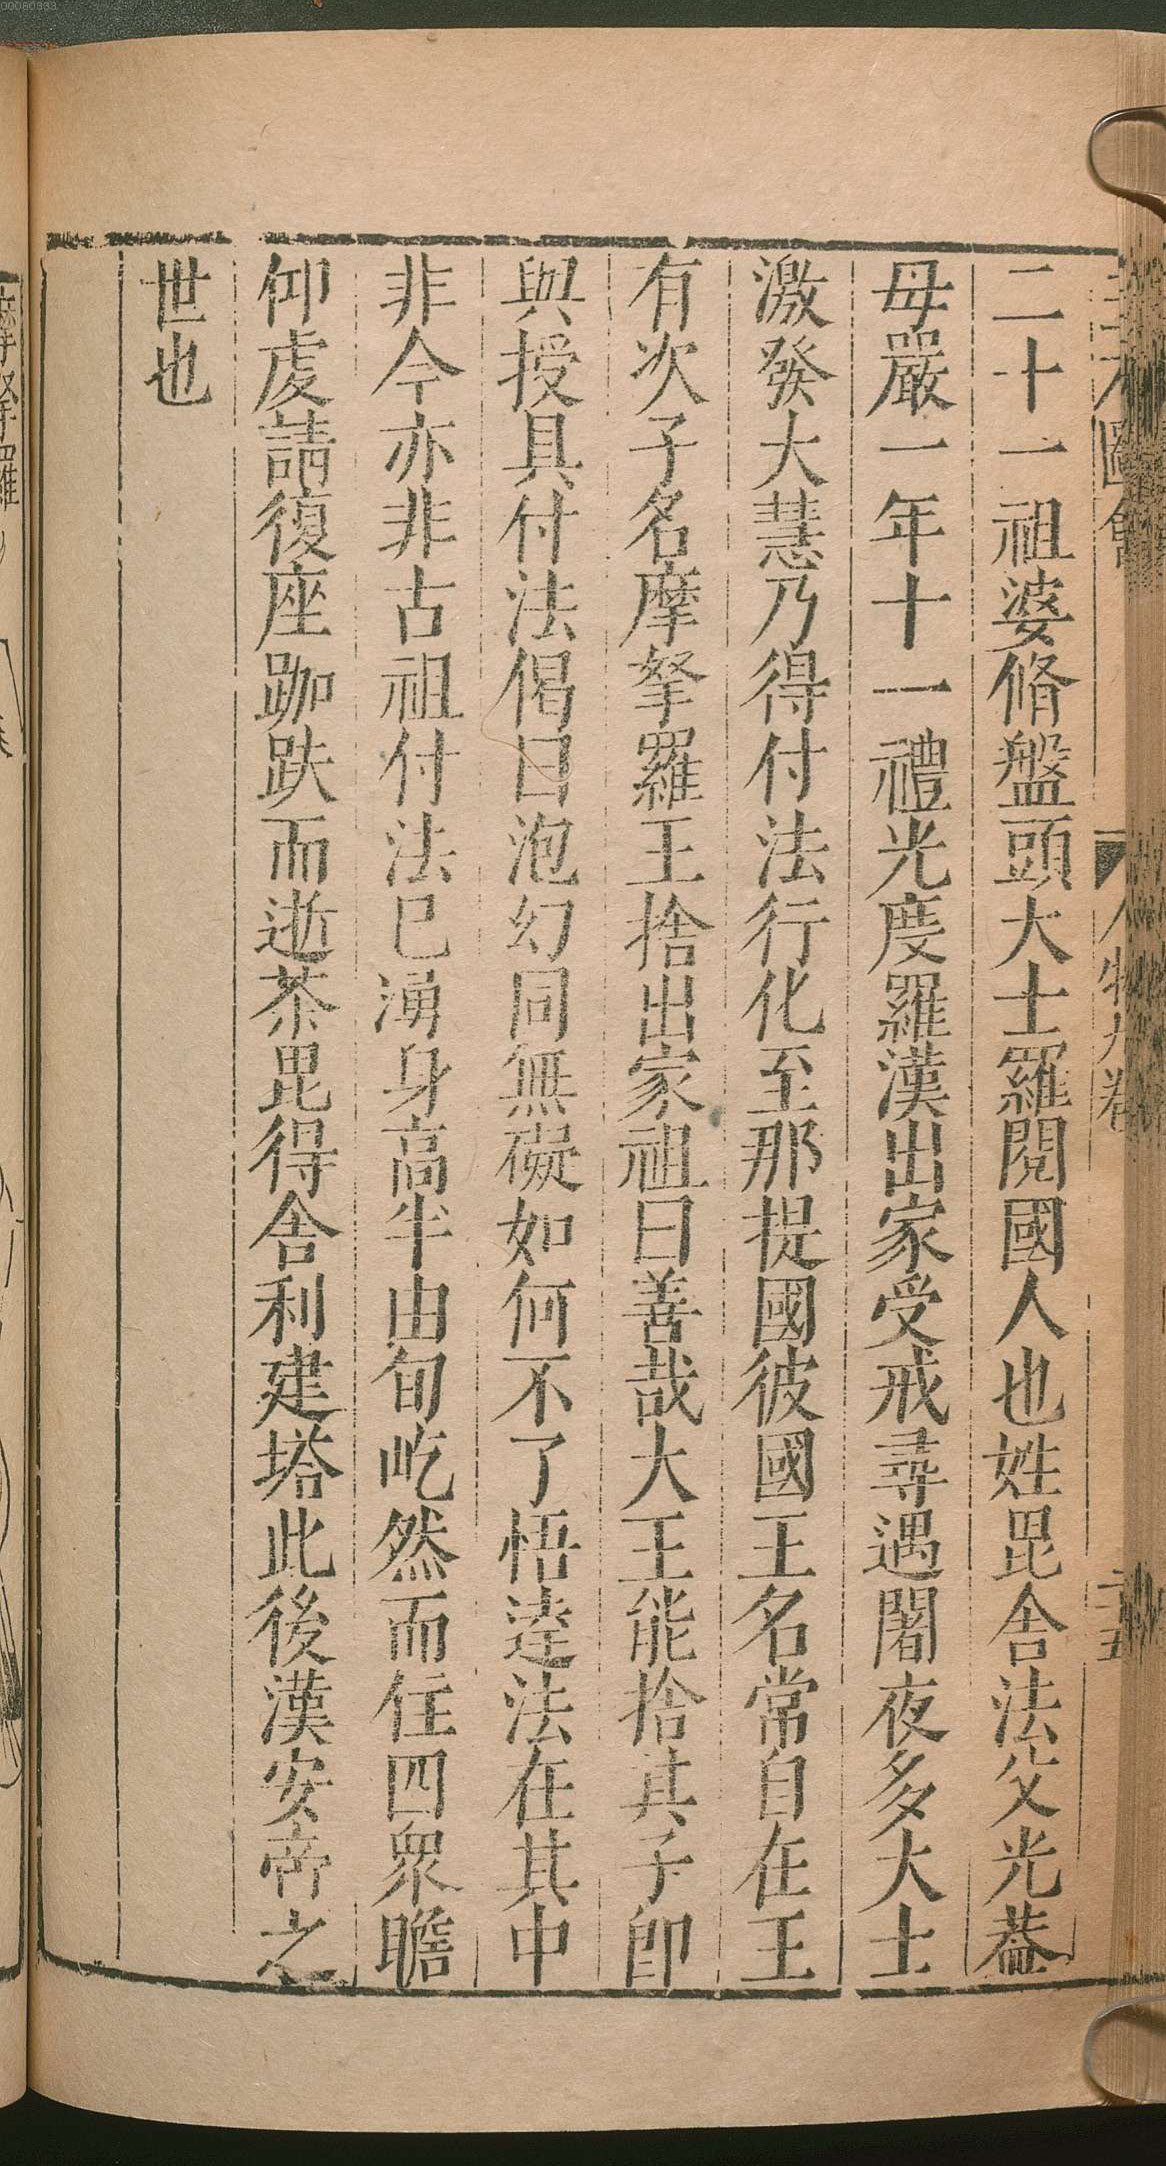 二十一祖婆脩盤頭大士羅閱國人也姓毘舍法父光葢
母嚴一年十一禮光度羅漢出家受戒尋遇闍夜多大士
激發大慧乃得付法行化至那提國彼國王名常自在王
有次子名摩拏羅王捨出家祖曰善哉大王能捨其子卽
與授具付法偈曰泡幻同無礙如何不了悟達法在其中
非今亦非古祖付法已湧身高半由旬屹然而住四衆瞻
仰虔請復座跏趺而逝荼毘得舍利建塔此後漢安帝之
世也
人物九卷
摩拏羅
00060033